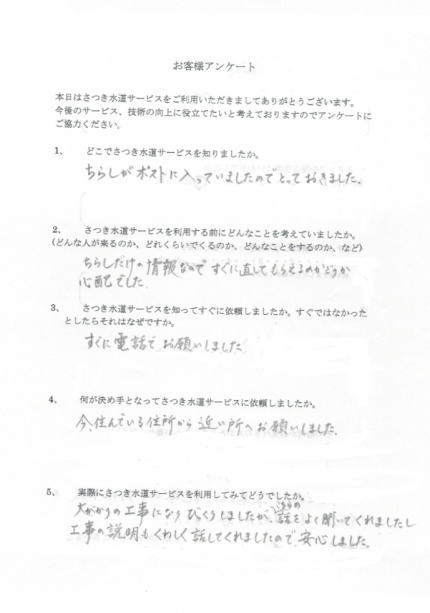 お客様アンケート
本日はさつき水道サービスをご利用いただきましてありがとうございます。
今後のサービス、技術の向上に役立てたいと考えておりますのでアンケートに
ご協力ください。
1、 どこでさつき水道サービスを知りましたか。
ちらしがポストに入っていましたのでとっておきました。
2、 さつき水道サービスを利用する前にどんなことを考えていましたか。
(どんな人が来るのか、どれくらいでくるのか、どんなことをするのか、など)
ちらしだけの情報なので すぐに直してもらえるのかどうか
心配でした
3、 さつき水道サービスを知ってすぐに依頼しましたか。すぐではなかった
としたらそれはなぜですか。
すぐに電話で お願いしました
4、 何が決め手となってさつき水道サービスに依頼しましたか。
今、住んでいる住所から 近い所へお願いしました。
5、 実際にさつき水道サービスを利用してみてどうでしたか。
大がかりの工事になり びっくりしましたが、こちらの話をよく聞いてくれましたし
工事の説明もくわしく話してくれましたので 安心しました。